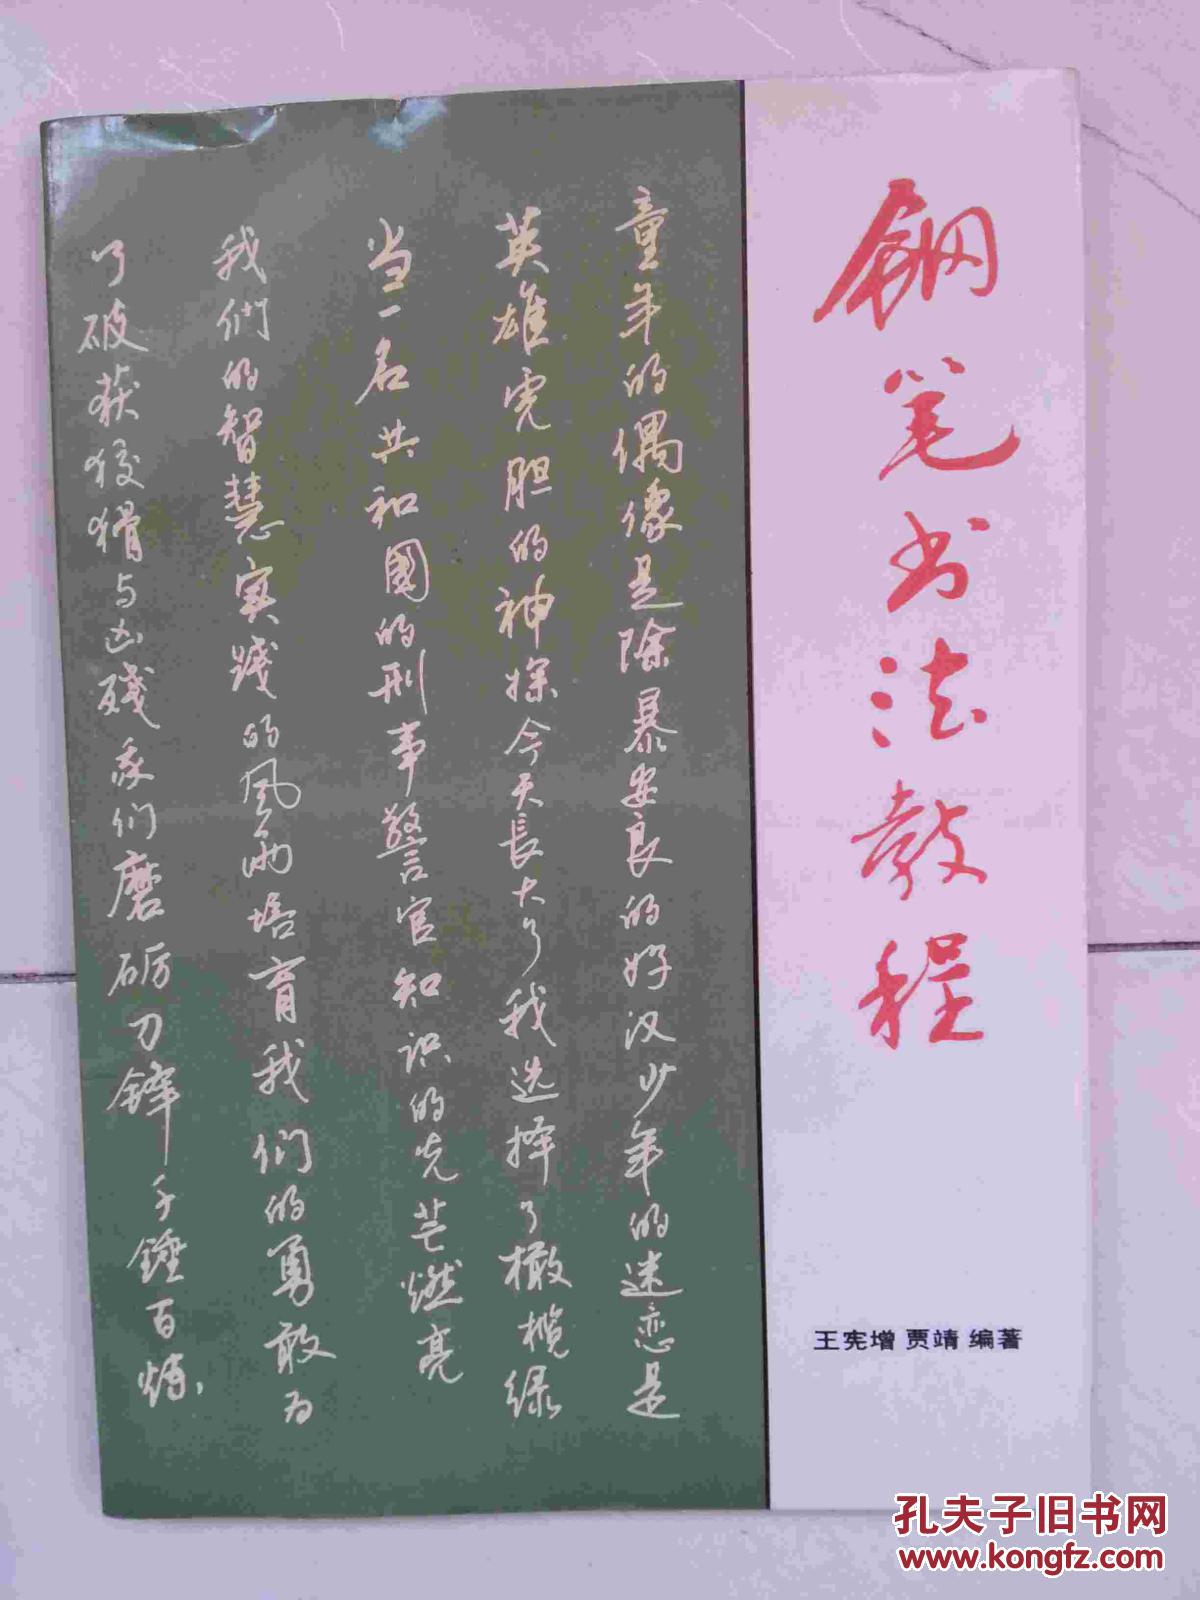 钢笔书法教程
王宪增 贾靖 编著
童年的偶像是除暴安良的好汉少年的迷恋是
英雄虎胆的神探今天長大了我选择了橄榄绿
当一名共和國的刑事警官知识的光芒燃亮
我們的智慧实践的风雨培育我们的勇敢为
了破获狡猾与凶残我们磨砺刀锋千锤百炼
孔夫子旧书网
www.kongfz.com